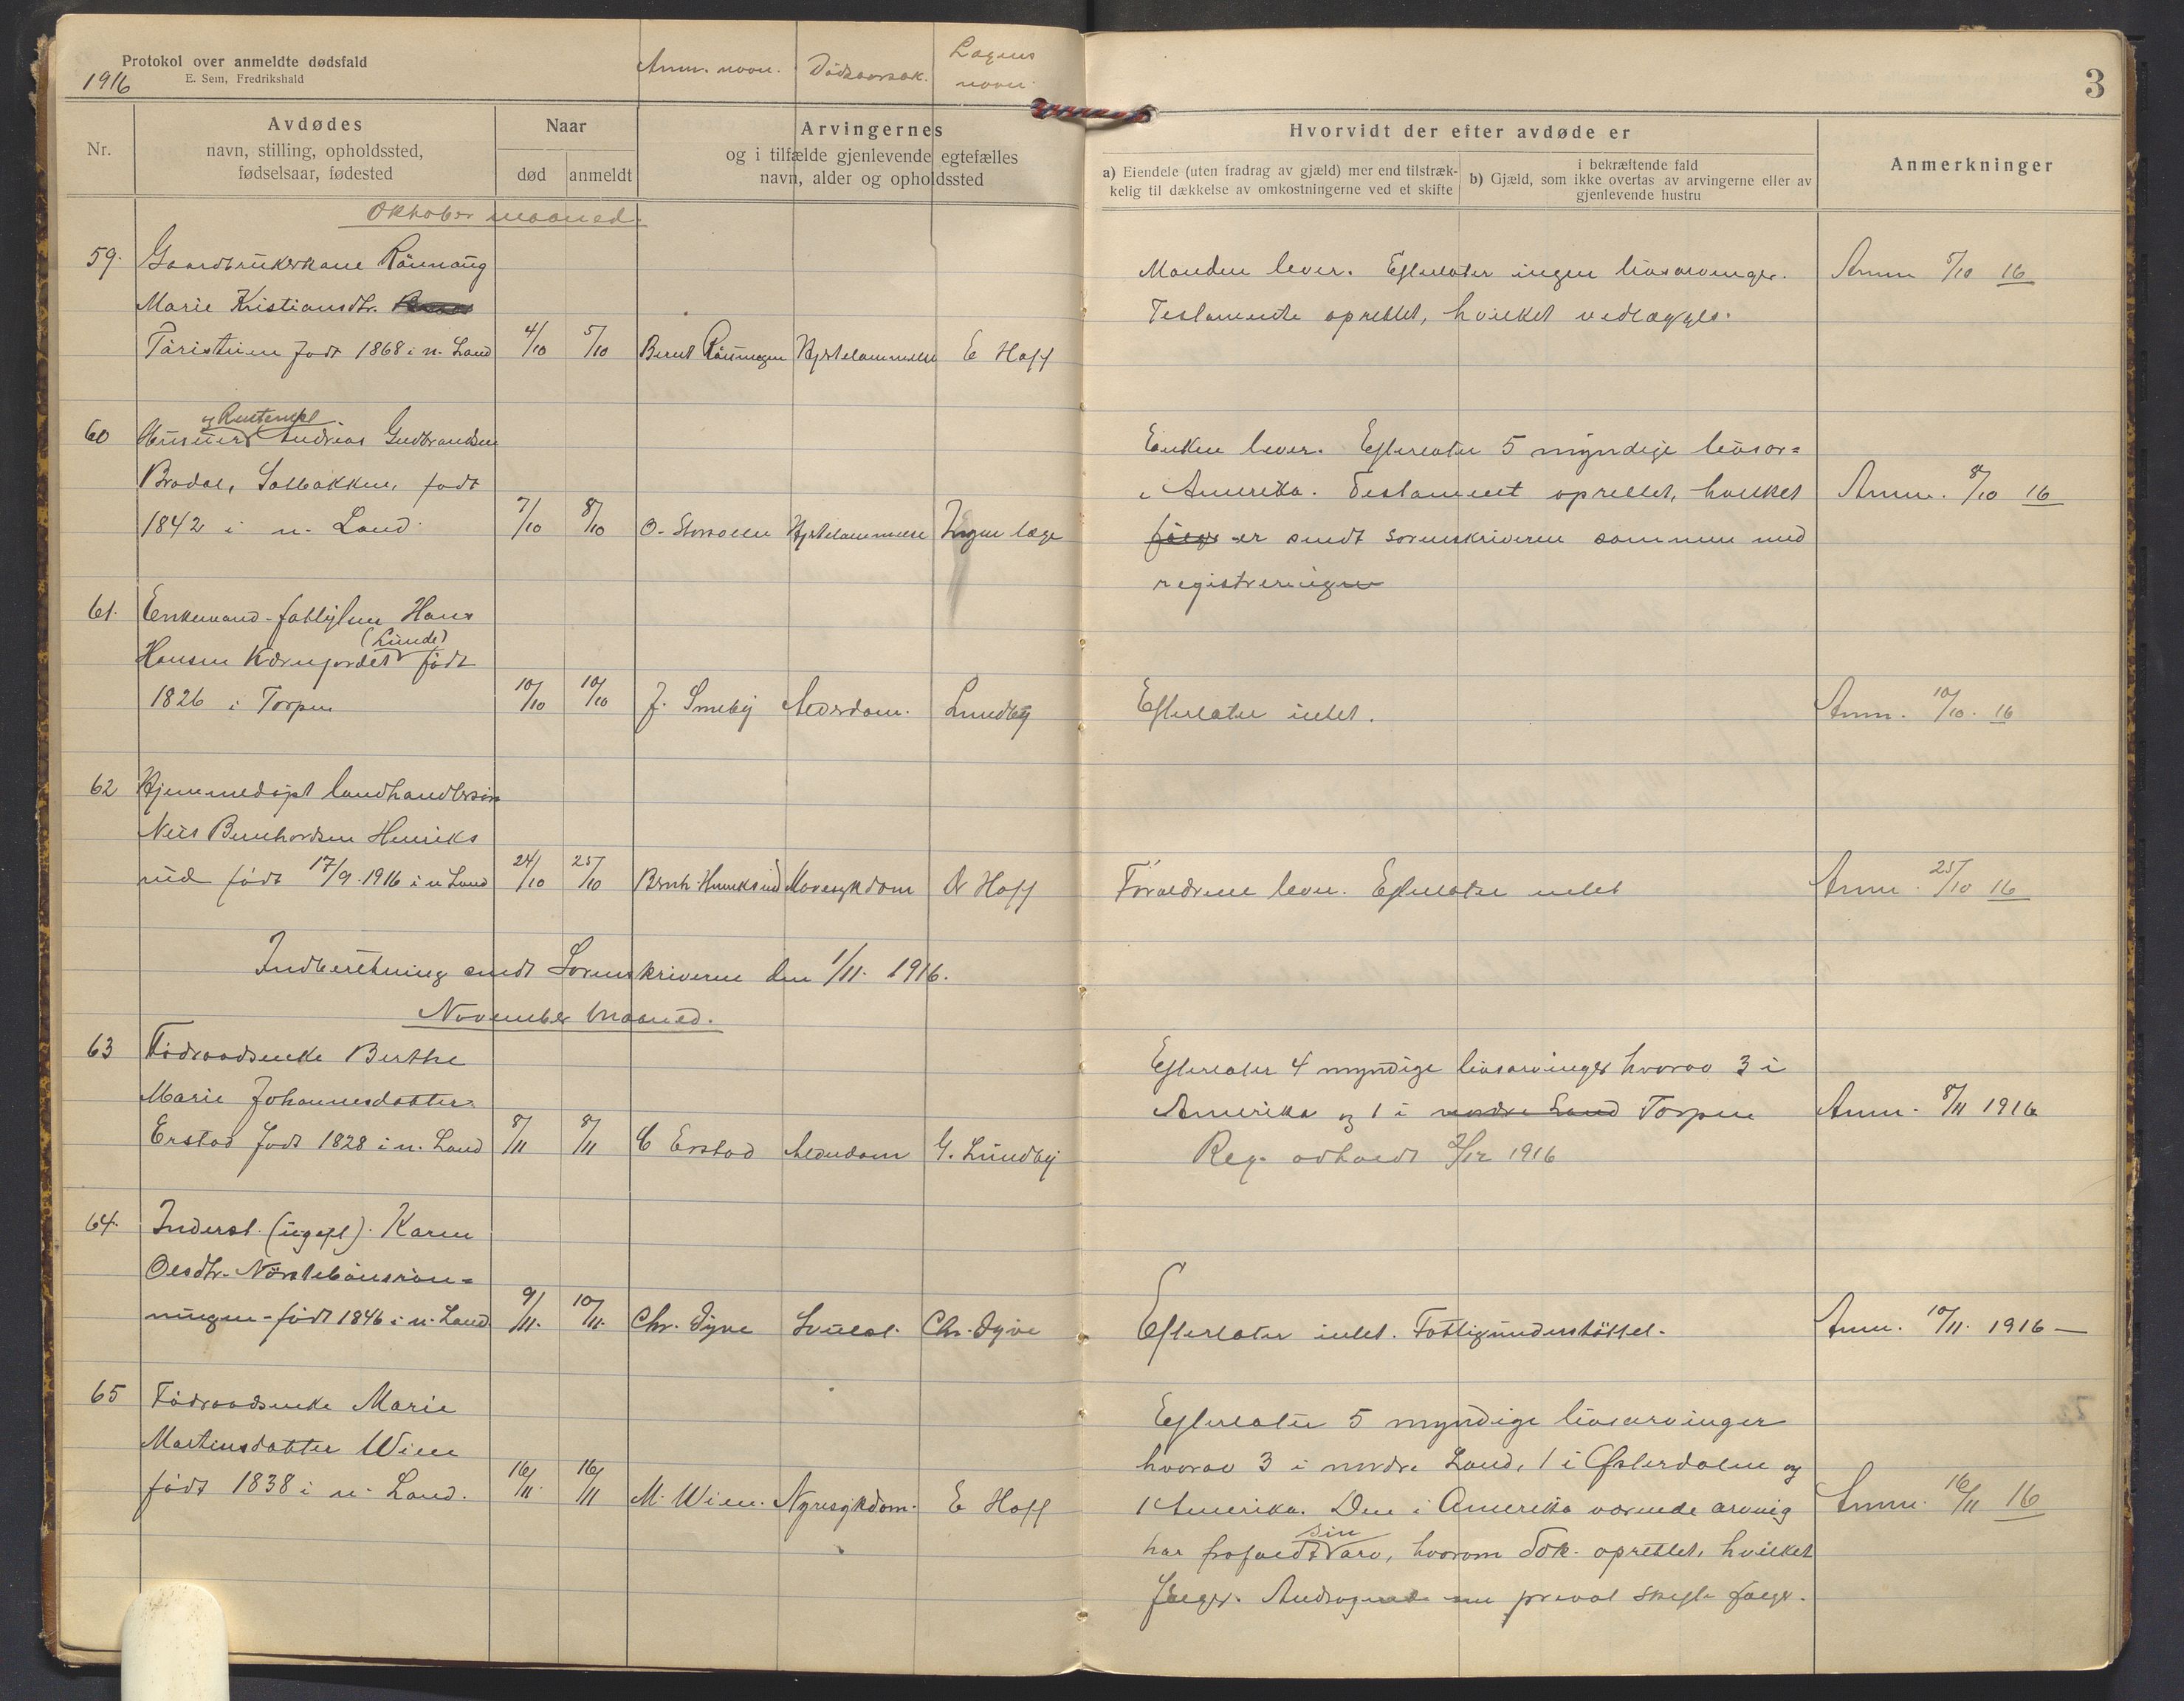 Protokol over anmeldte dødsfald
E. Sem, Fredrikshald
1916
Anm. navn.
Dödsaarsak.
Lægens
navn.
3
Nr.
Avdødes
navn, stilling, opholdssted,
fødselsaar, fødested
Naar
død
anmeldt
Arvingernes
og i tilfælde gjenlevende egtefælles
navn, alder og opholdssted
Hvorvidt der efter avdøde er
a) Eiendele (uten fradrag av gjæld) mer end tilstræk-
kelig til dækkelse av omkostningerne ved et skifte
i bekræftende fald
b) Gjæld, som ikke overtas av arvingerne eller av
gjenlevende hustru
Anmerkninger
Oktober maaned
59. Gaardbrukerkone Rönnaug
Marie Kristiansdtr.
født 1868 i n. Land 4/10 5/10 Bernt Hjertelammelse E Hoff
Manden lever. Efterlater ingen livsarvinger.
Testamente oprettet, hvilket vedlægges.
Anm 5/10 16
60 Andreas Gudbrandsen
Brodal, Solbakken, født
1842 i n. Land. 7/10 8/10 O. Hjertelammelse Ingen læge
Enken lever. Efterlater 5 myndige livsar=
i Amerika. Testament oprettet, hvilket
følger er sendt sorenskriveren sammen med
registreringen
Anm. 8/10 16
61. Enkemand fattiglem Hans
(Lunde)
Hansen Kværnjordet født
1826 i Torpen 10/10 10/10 J. Smeby Alderdom. Lundby
Efterlater intet.
Anm. 10/10. 16
62 Hjemmedøpt landhandlersøn
Nils Bernhardsen Henriks
rud født 17/9 1916 i n Land 24/10 25/10 Bernh. Henriksrud Mavesykdom A Hoff
Foræeldrene lever. Efterlater intet
Anm. 25/10 16
Indberetning sendt Sorenskriveren den 1/11. 1916.
November Maaned.
63 Födraadsenke Berthe
Marie Johannesdatter
Erstad født 1828 i n. Land 8/11 8/11 C Erstad Alderdom G. Lundby
Efterlater 4 myndige livsarvinger hvorav 3 i
Amerika og 1 i nordre Land Torpen
Reg. avholdt 2/12 1916
Anm. 8/11 1916
64. Inderst. (ugift). Karen
Olsdtr. Nörstebönsrön=
ningen født 1846 i n. Land 9/11. 10/11. Chr. Dyve Svulst. Chr. Dyve
Efterlater intet. Fattigunderstöttet.
Anm. 10/11. 1916 —
65 Födraadsenke Marie
Martinsdatter Wien
født 1838 i n. Land. 16/11 16/11 M. Wien. Nyresykdom. E Hoff
Efterlater 5 myndige livsarvinger
hvorav 3 i nordre Land, 1 i Østerdalen og
1 Amerika. Den i Amerika værende arving
sin
har frafaldt arv, hvorom dok. oprettet, hvilket
følger. Andragende om privat skifte følger.
Anm. 16/11 16